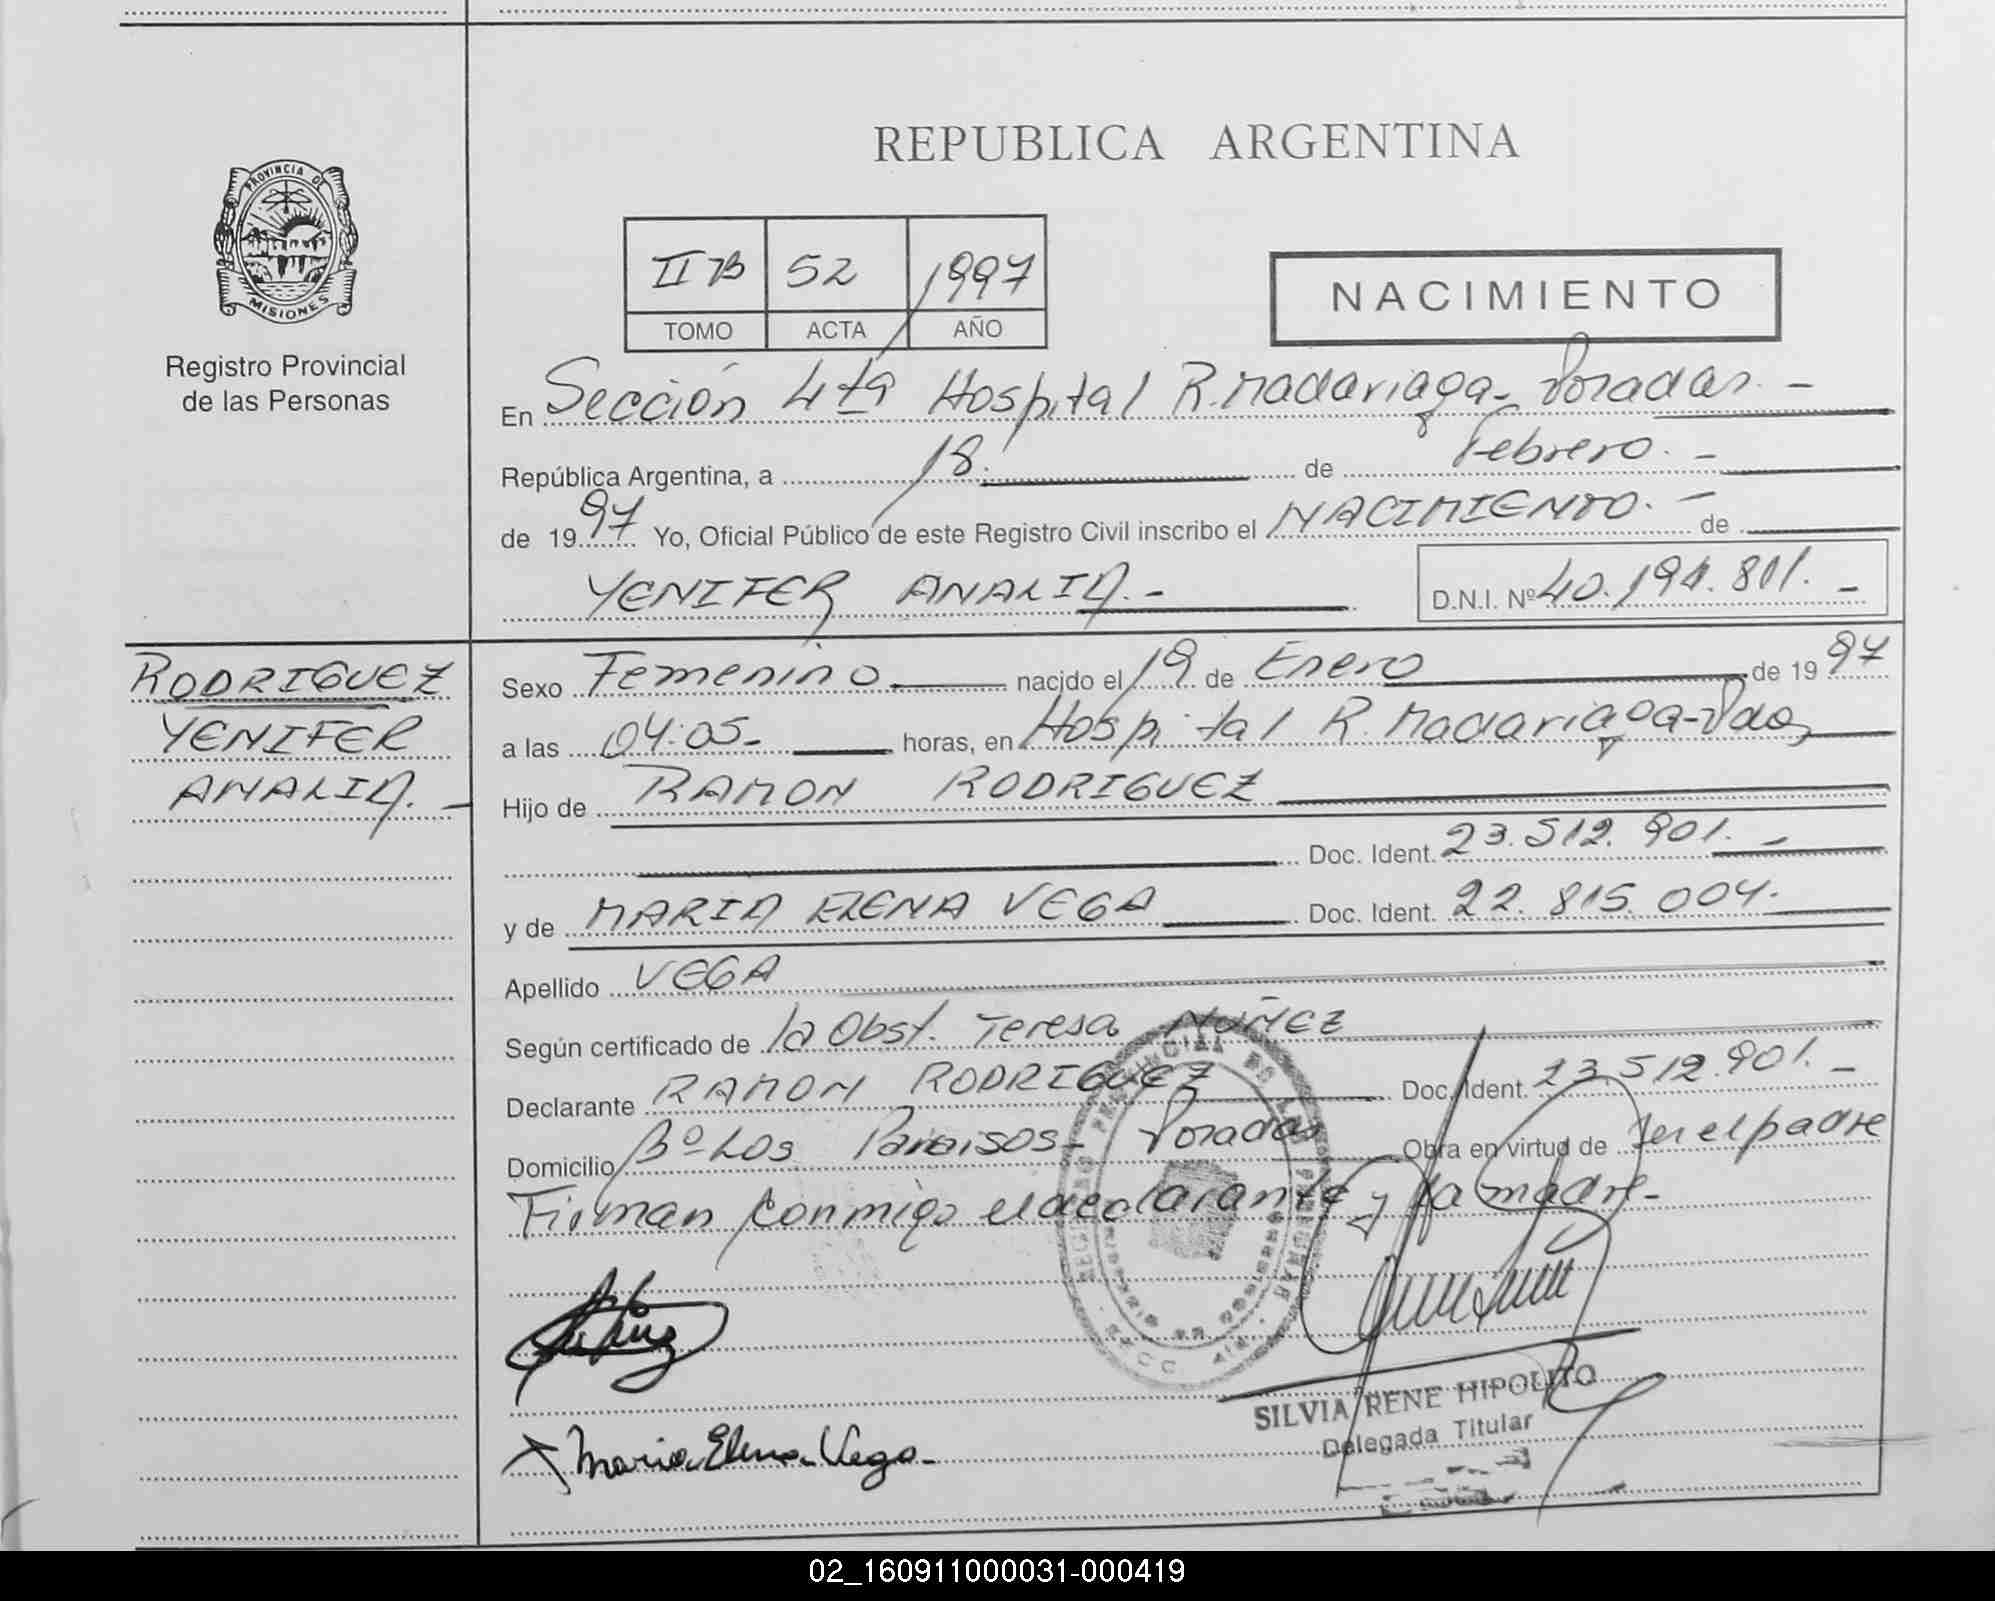 REPUBLICA ARGENTINA
PROVINCIA DE
MISIONES
Registro Provincial
de las Personas
II B 52 1997
TOMO ACTA AÑO
NACIMIENTO
En Sección 4ta Hospital R. Madariaga- Posadas. -
República Argentina, a 18. de Febrero. -
de 1997 Yo, Oficial Público de este Registro Civil inscribo el NACIMIENTO. - de
YENIFER ANALIA. - D.N.I. Nº 40.194.811. -
RODRIGUEZ
YENIFER
ANALIA. -
Sexo Femenino nacido el 19 de Enero de 1997
a las 04:05- horas, en Hospital R. Madariaga-Pdas,
Hijo de RAMON RODRIGUEZ
Doc. Ident. 23.512.901. -
y de MARIA ELENA VEGA Doc. Ident. 22.815.004.
Apellido VEGA
Según certificado de la Obst. Teresa NUÑEZ
Declarante RAMON RODRIGUEZ Doc. Ident. 23.512.901. -
Domicilio Bº Los Paraisos- Posadas Obra en virtud de Ser el padre
Firman conmigo el declarante y la madre-
Maria Elena Vega-
SILVIA RENE HIPOLITO
Delegada Titular
02_160911000031-000419